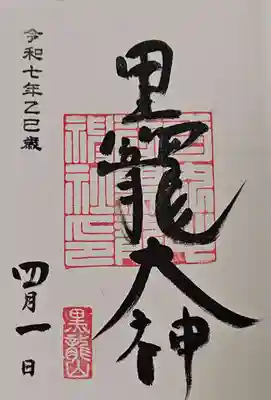 黒龍大神
令和七年乙巳歳
四月一日
黒龍山